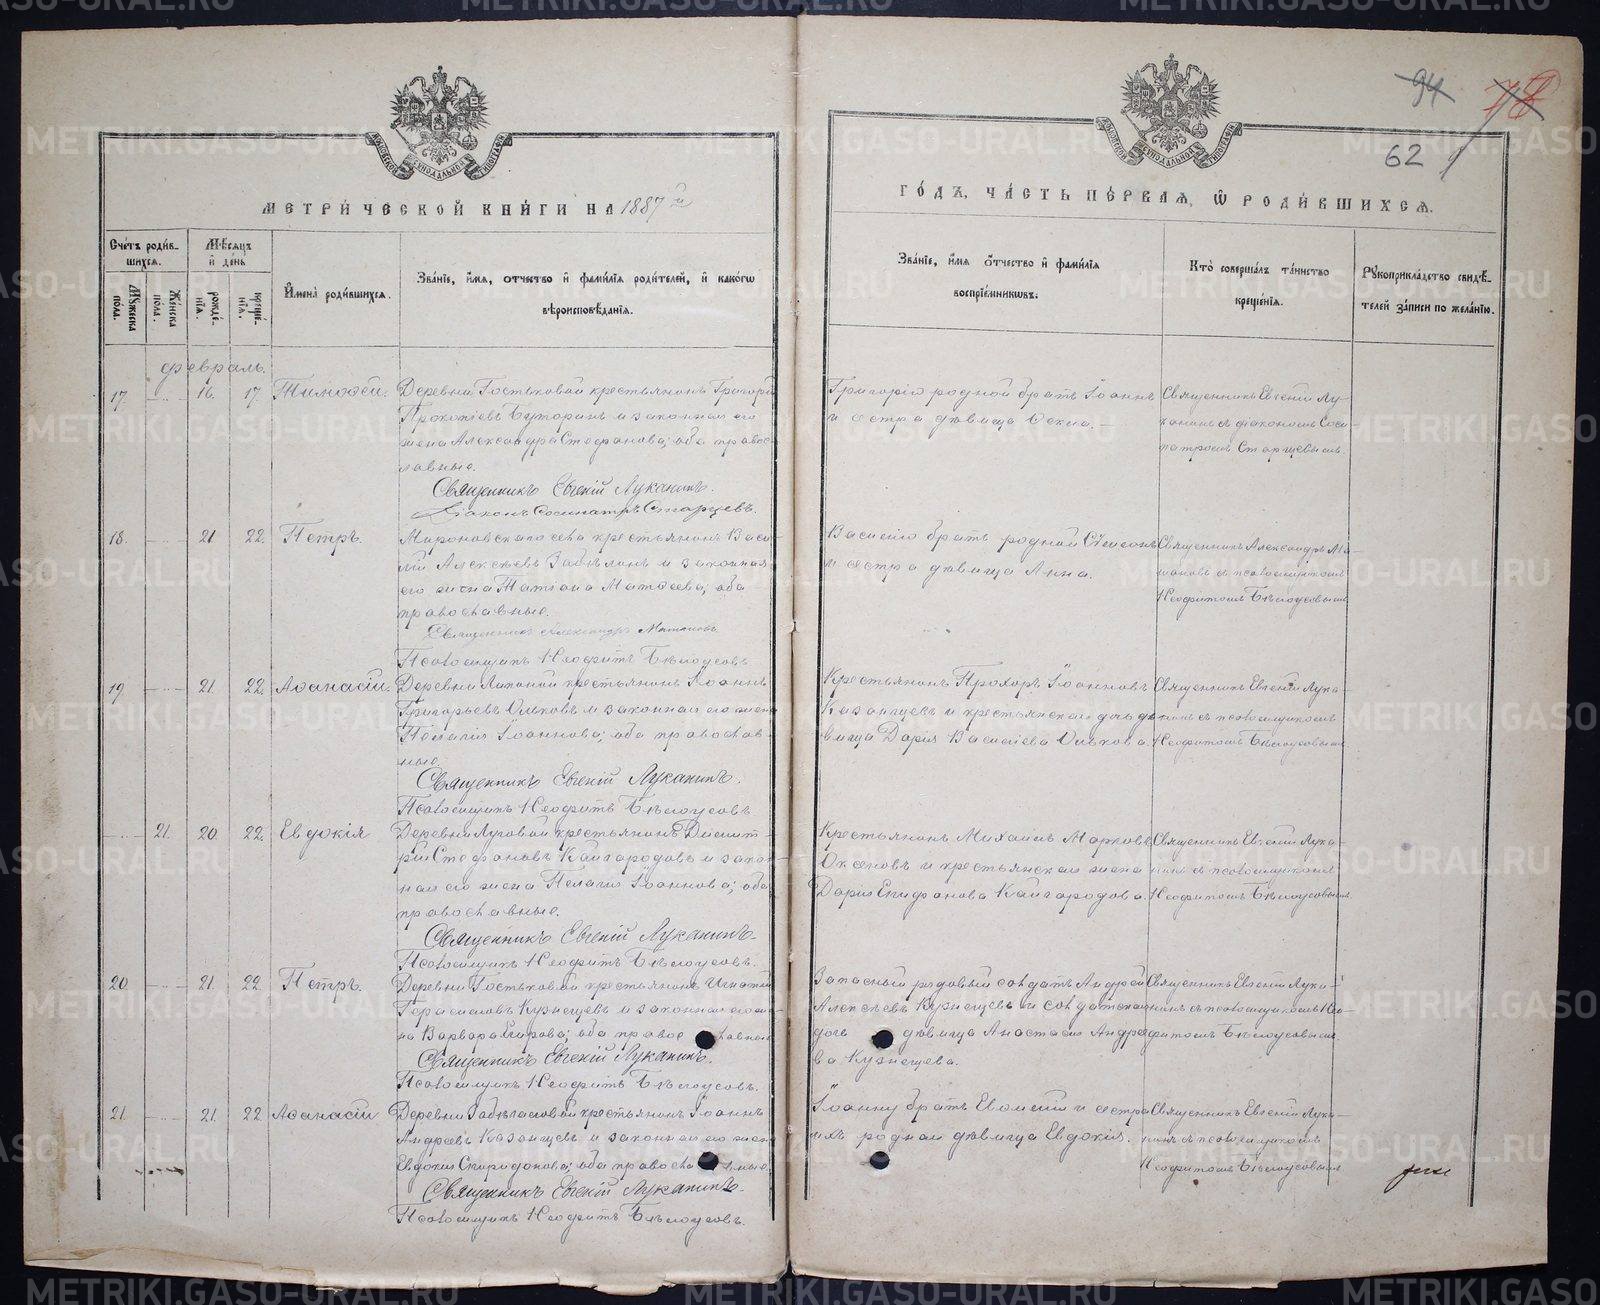 94 78
62
МЕТРИЧЕСКОЙ КНИГИ НА 1887й
ГОДЪ, ЧАСТЬ ПЕРВАЯ, Ѡ РОДИВШИХСЯ.
Счетъ родившихся.
Мужеска пола.
Женска пола.
Мѣсяцъ и день
рожденія.
крещенія.
Имена родившихся.
Званіе, имя, отчество и фамилія родителей, и какогѡ
вѣроисповѣданія.
Званіе, имя отчество и фамилія
воспріемниковъ.
Кто совершалъ таинство
крещенія.
Рукоприкладство свидѣ-
телей записи по желанію.
Февраль.
17 16. 17. Тимоѳей.
Деревни Гостьковой крестьянинъ Григорій
Прокопіевъ Буторинъ и законная его
жена Александра Стефанова; оба правос-
лавные.
Священникъ Евгеній Луканинъ.
Діаконъ Сосипатръ Старцевъ.
Григорію родной братъ Іоаннъ
и сестра дѣвица
Священникъ Евгеній Лу-
канинъ съ діакономъ Соси-
патромъ Старцевымъ.
18. 21 22. Петръ.
Мироновскаго села крестьянинъ Васи-
лій Алексѣевъ Забѣлинъ и законная
его жена Татіана Матѳеева; оба
православные.
Священникъ Александръ
Псаломщикъ Неофитъ Бѣлоусовъ
Василію братъ родной Сѵмеонъ
и сестра дѣвица Анна.
Священникъ Александръ
съ псаломщикомъ
Неофитомъ Бѣлоусовымъ
19. 21. 22. Аѳанасій.
Деревни Липиной крестьянинъ Іоаннъ
Григорьевъ Ольковъ и законная его жена
Пелагія Іоаннова; оба православ-
ные.
Священникъ Евгеній Луканинъ.
Псаломщикъ Неофитъ Бѣлоусовъ
Крестьянинъ Прохоръ Іоанновъ
Казанцевъ и крестьянская дочь дѣ-
вица Дарія Василіева Олькова.
Священникъ Евгеній Лука-
нинъ съ псаломщикомъ
Неофитомъ Бѣлоусовымъ
21. 20. 22. Евдокія
Деревни Луговой крестьянинъ Димит-
рій Стефановъ Кайгородовъ и закон-
ная его жена Пелагія Іоаннова; оба
православные.
Священникъ Евгеній Луканинъ.
Псаломщикъ Неофитъ Бѣлоусовъ.
Крестьянинъ Михаилъ Марковъ
Оксеновъ и крестьянская жена
Дарія Епифанова Кайгородова.
Священникъ Евгеній Лука-
нинъ съ псаломщикомъ
Неофитомъ Бѣлоусовымъ.
20 21. 22. Петръ.
Деревни Гостьковой крестьянинъ Игнатій
Герасимовъ Кузнецовъ и законная его же-
на Варвара Егорова; оба православные
Священникъ Евгеній Луканинъ.
Псаломщикъ Неофитъ Бѣлоусовъ.
Запасный рядовый солдатъ Андрей
Алексѣевъ Кузнецовъ и солдатская
дочь дѣвица Анастасія Андрее-
ва Кузнецова.
Священникъ Евгеній Лука-
нинъ съ псаломщикомъ Нео-
фитомъ Бѣлоусовымъ
21. 21. 22 Аѳанасій
Деревни Забѣгаловой крестьянинъ Іоаннъ
Андреевъ Казанцевъ и законная его жена
Евдокія Спиридонова; оба православные.
Священникъ Евгеній Луканинъ.
Псаломщикъ Неофитъ Бѣлоусовъ.
Іоанну братъ Евѳимій и сестра
ихъ родная дѣвица Евдокія.
Священникъ Евгеній Лука-
нинъ съ псаломщикомъ
Неофитомъ Бѣлоусовымъ
METRIKI.GASO-URAL.RU